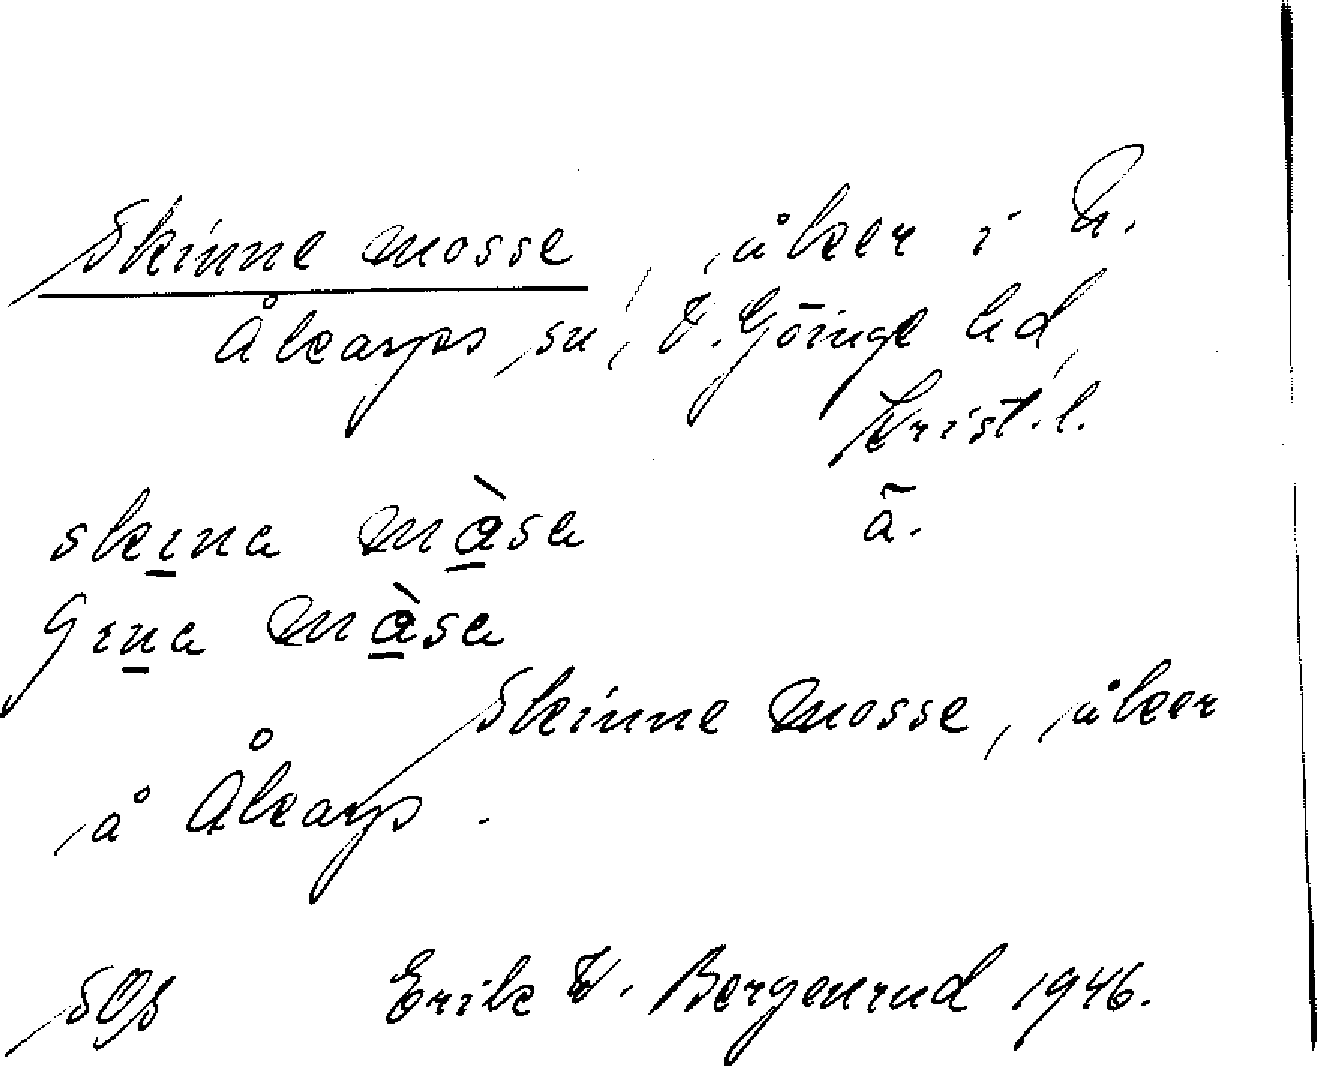 Skinne mosse, åker i N.
Åkarps sn, V. Göinge hd,
Krist. l.
skɩna mɑ̀sa ä.
gɩna mɑ̀sa
Skinne mosse, åker
å Åkarp.
SOs Erik W. Bergenrud 1946.